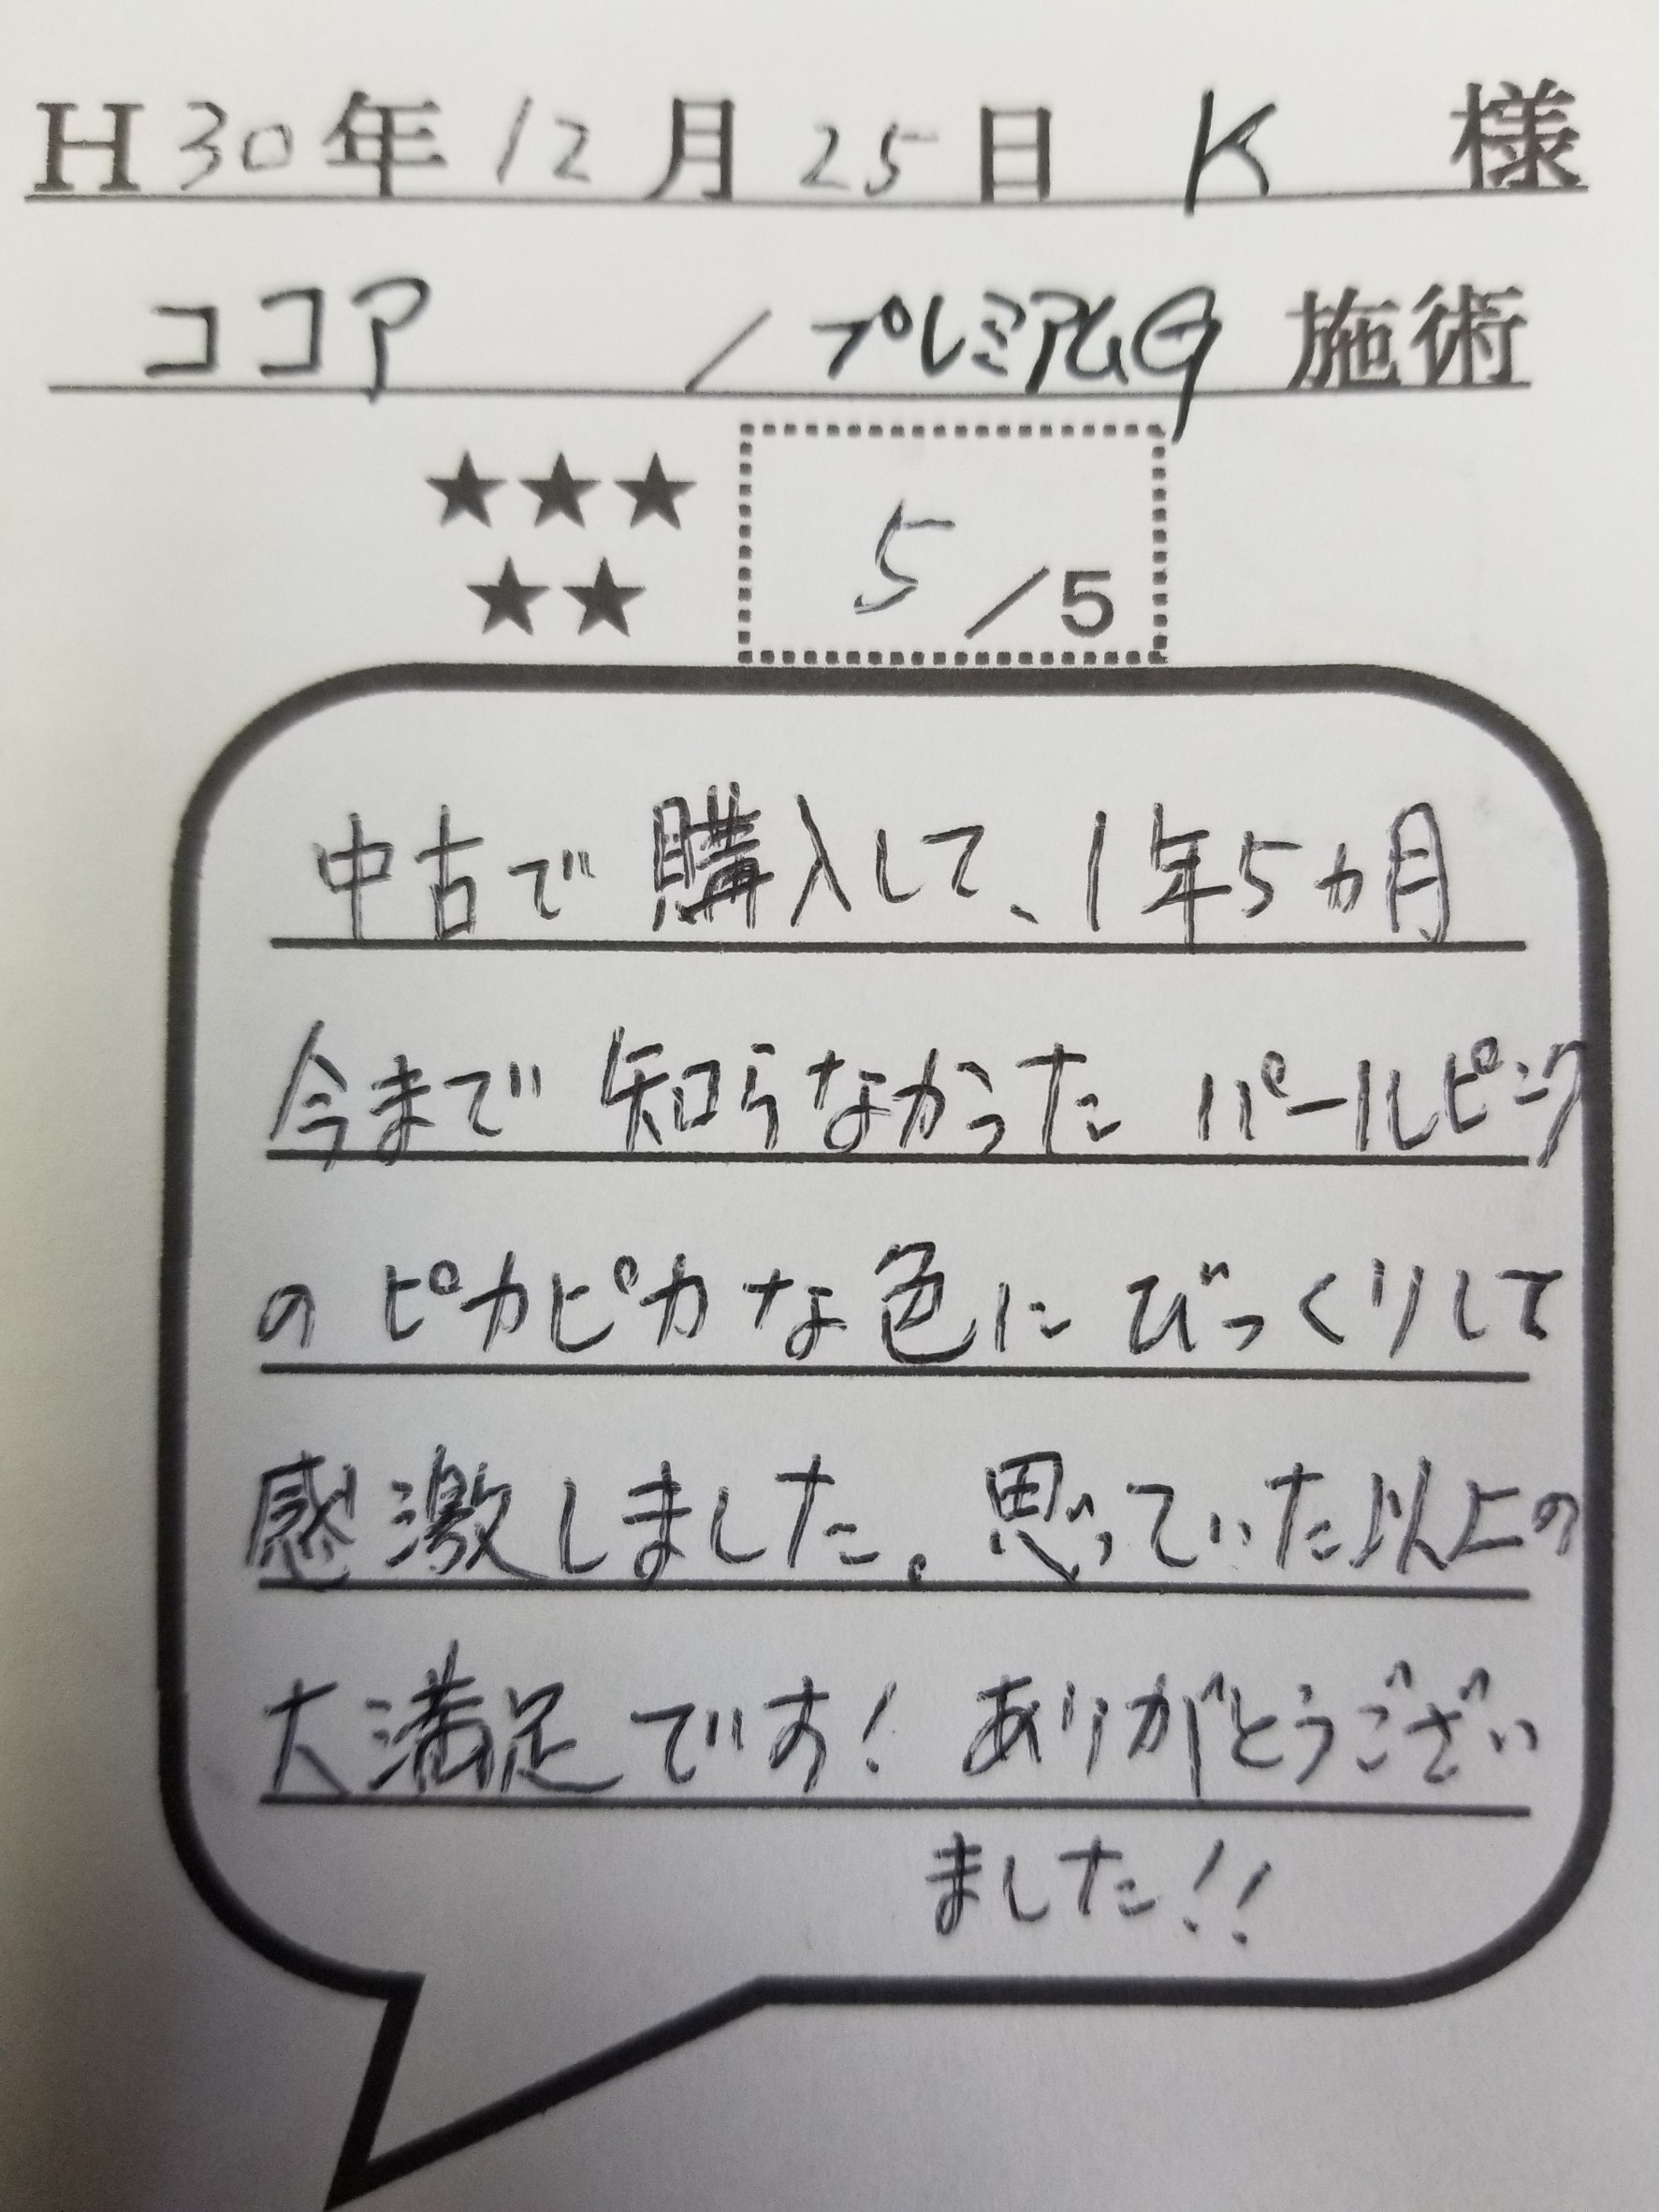 H30年12月25日 K 様
ココア / プレミアムG 施術
★★★
★★
5/5
中古で購入して、1年5カ月
今まで知らなかったパールピンク
のピカピカな色にびっくりして
感激しました。思っていた以上の
大満足です！ありがとうござい
ました!!